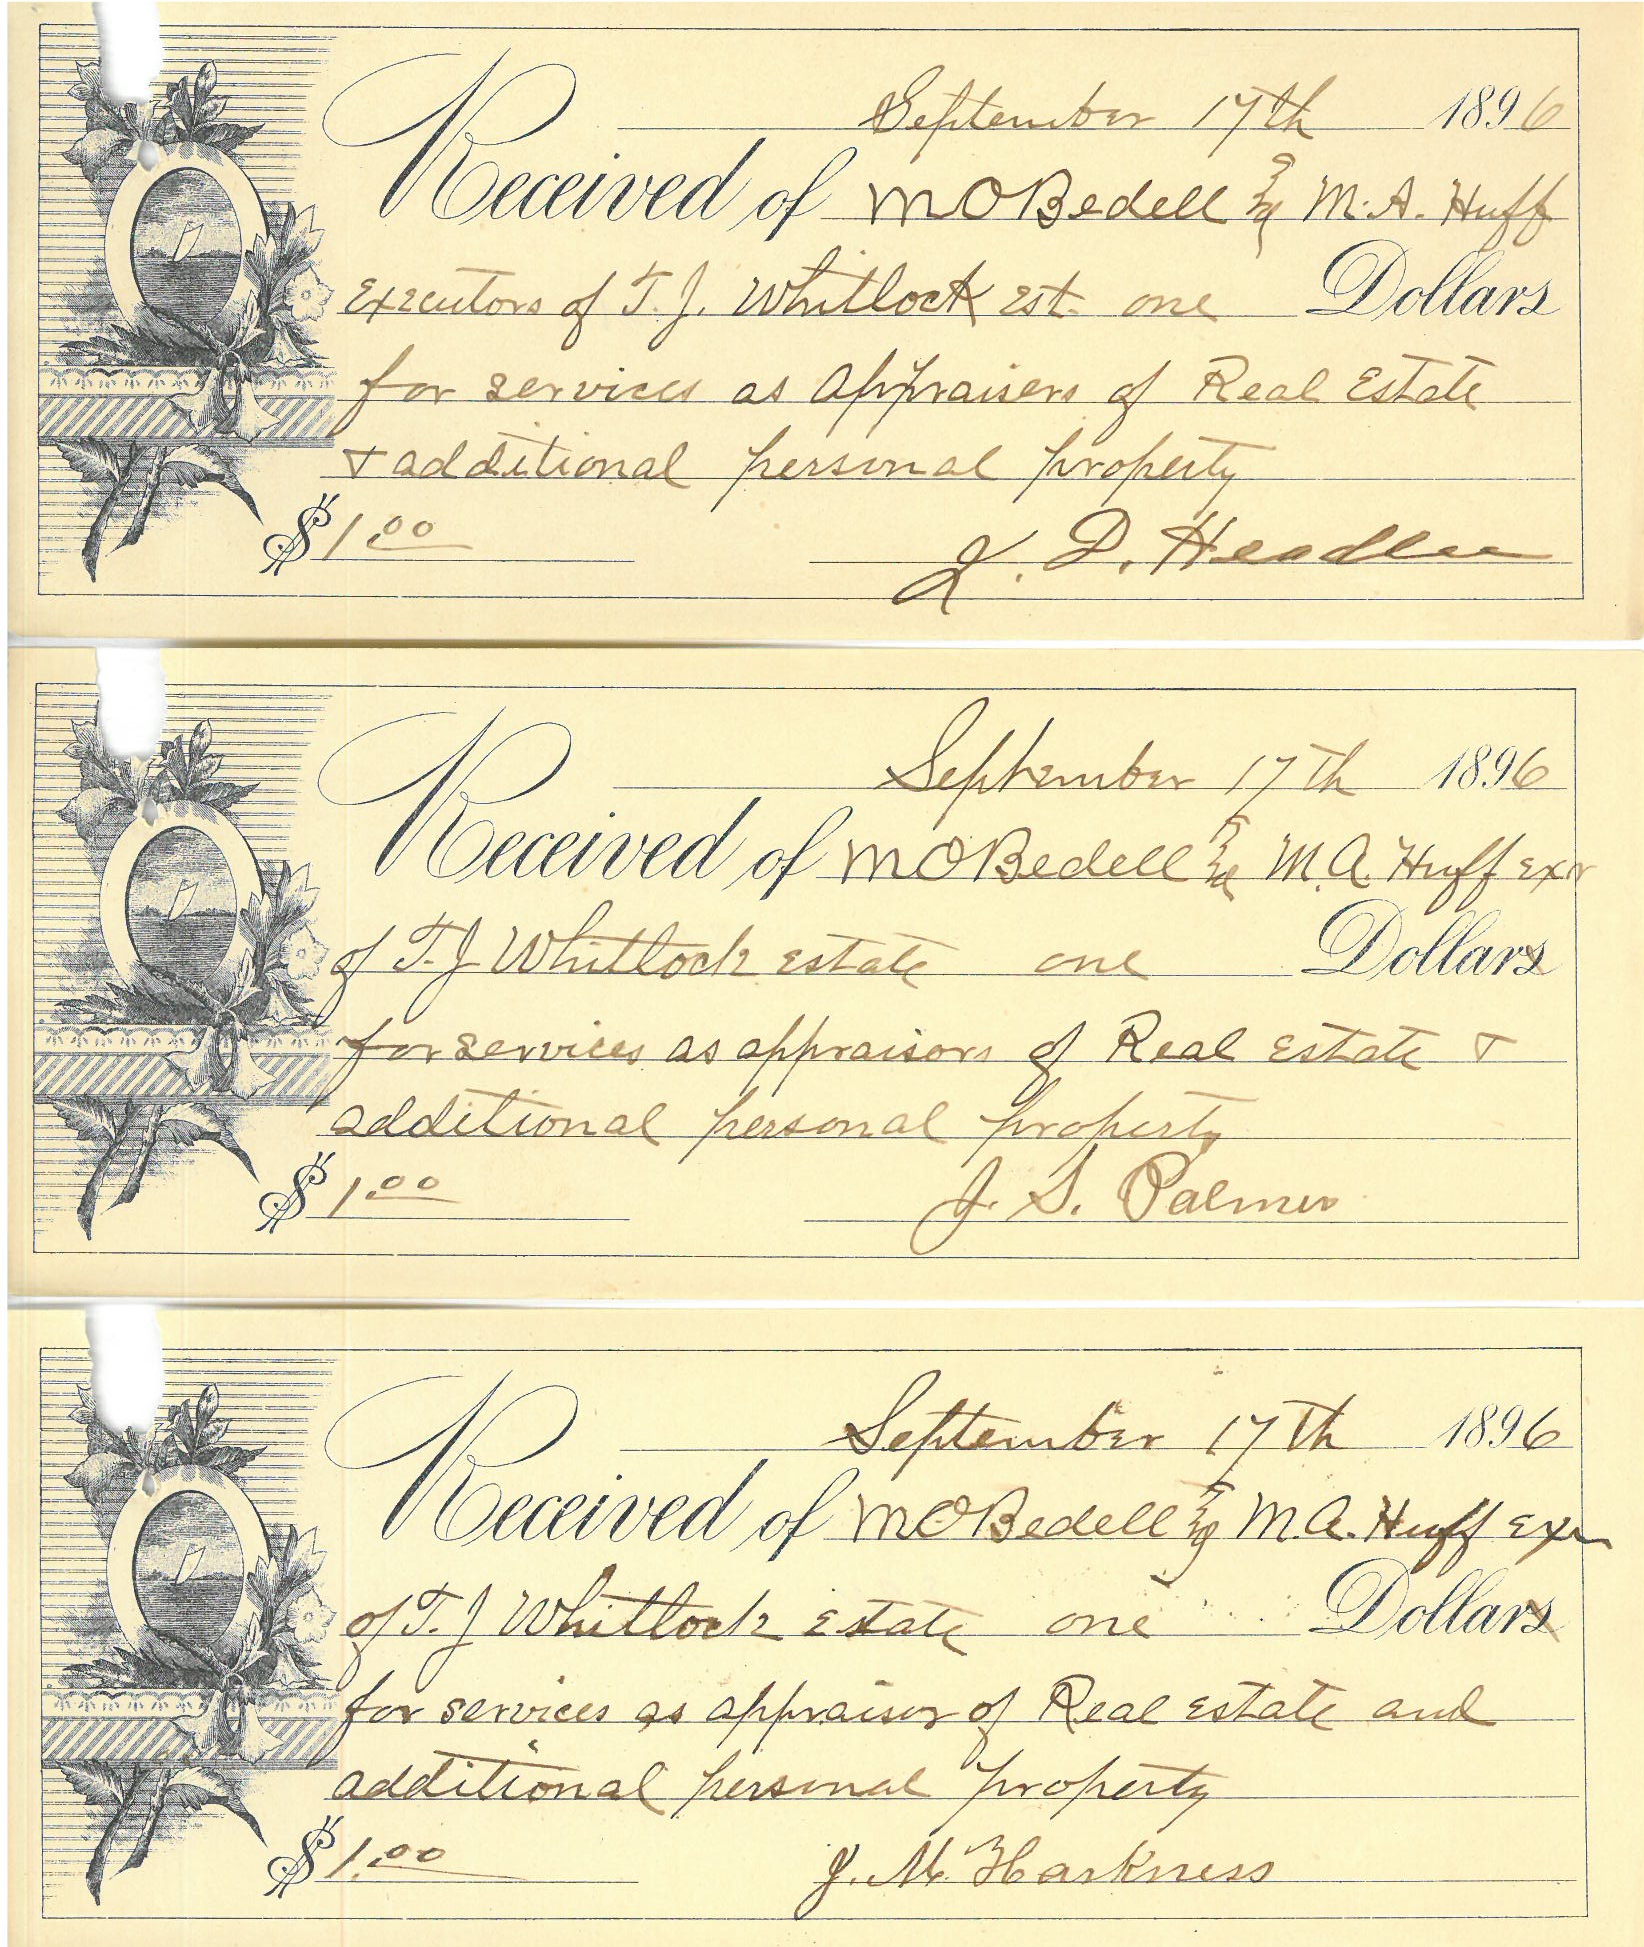 September 17th 1896
Received of M O Bedell & M. A. Huff
Executors of T. J. Whitlock Est. one Dollars
for services as appraisers of Real Estate
& additional personal property
$ 1.00 D. Headlee
September 17th 1896
Received of M O Bedell & M. A. Huff exr
of T. J Whitlock Estate one Dollars
for services as appraisors of Real Estate &
additional personal property
$ 1.00 J. S. Palmer
September 17th 1896
Received of M. O Bedell & M. A. Huff exr
of T. J Whitlock Estate one Dollars
for services as appraisor of Real Estate and
additional personal property
$ 1.00 J. M. Harkness